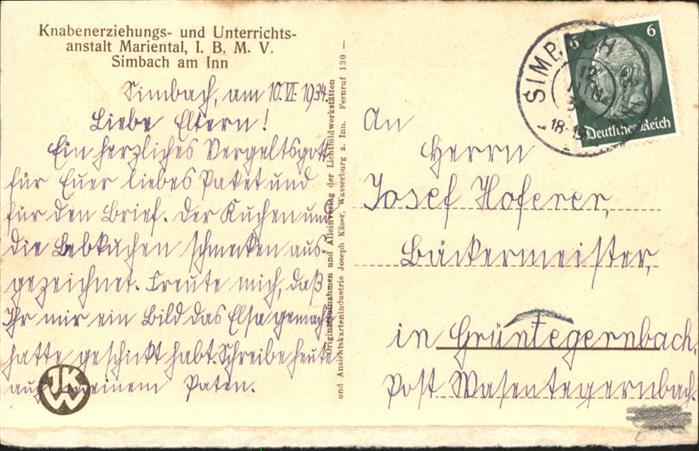 Knabenerziehungs- und Unterrichts-
anstalt Mariental, I. B. M. V.
Simbach am Inn
Simbach, am 10.VI.1934.
Liebe Eltern!
Ein herzliches Vergeltsgott
für Euer liebes Paket und
für den Brief. Der Kuchen und
die Lebkuchen schmecken aus-
gezeichnet. Freute mich, daß
Ihr mir ein Bild das Elsa gemacht
hatte geschickt habt. Schreibe heute
auch meinem Paten.
Originalaufnahmen und Alleinverlag der Lichtbildwerkstätten
und Ansichtskartenindustrie Joseph Käser, Wasserburg a. Inn. Fernruf 130 —
SIMBACH
12
18-19
6 6
Deutsches Reich
An
Herrn
Josef Hoferer,
Bäckermeister,
in Grüntegernbach,
Post Wasentegernbach.